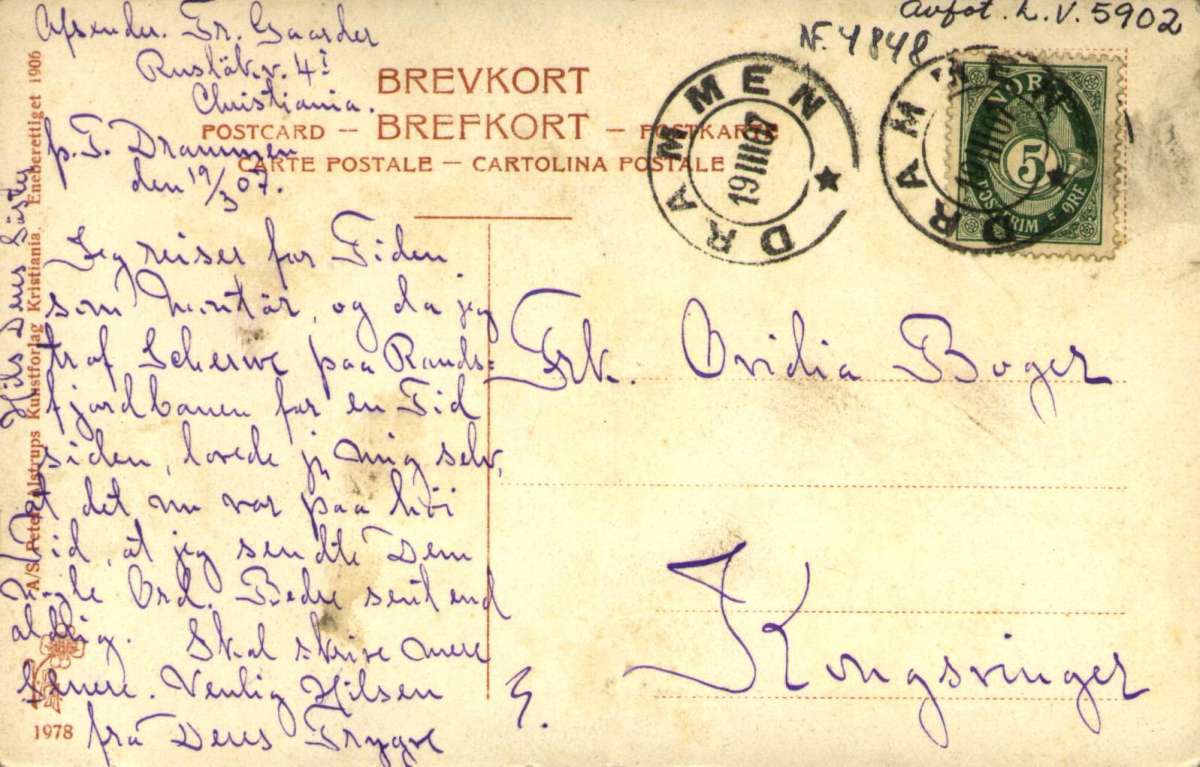 Avfot. L.V. 5902
N.F. 4848
Afsender. Tr. Gaarder
Christiania.
p.T. Drammen
den 19/3 07.
BREVKORT
POSTCARD — BREFKORT — POSTKARTE
CARTE POSTALE — CARTOLINA POSTALE
DRAMMEN
19 III 07
DRAMMEN
19 III 07
NORGE
5
POSTFRIM. 5 ØRE
Jeg reiser for Tiden
som Montör, og da jeg
traf Scherwe paa Rands=
fjordbanen for en Tid
siden, lovede jeg mig selv,
at det nu var paa høi
Tid, at jeg sendte Dem
nogle Ord. Bedre sent end
aldrig. Skal skrive mere
senere. Venlig Hilsen
fra Deres Trygve
G.
Frk. Ovidia Boger
Kongsvinger
Hils Deres
A/S Peter Alstrups Kunstforlag Kristiania. Eneberettiget 1906
1978